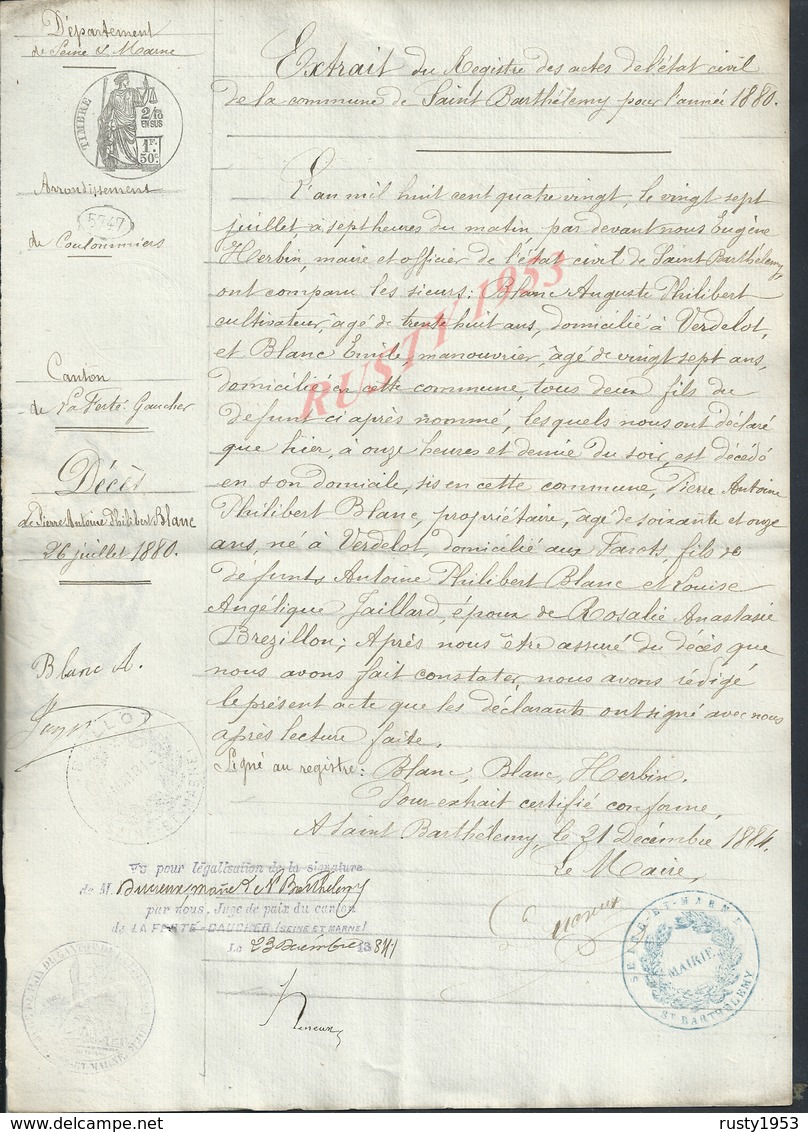 Département
de Seine & Marne
TIMBRE
2/10
EN SUS
1F.
50c.
Arrondissement
5747
de Coulommiers
Canton
de La Ferté-Gaucher
Décès
de Pierre Antoine Philibert Blanc
26 juillet 1880.
Blanc A.
Extrait du Registre des actes de l'état civil
de la commune de Saint Barthélemy pour l'année 1880.
L'an mil huit cent quatre vingt, le vingt sept
juillet à sept heures du matin par devant nous Eugène
Herbin, maire et officier de l'état civil de Saint Barthélemy,
ont comparu les sieurs: Blanc Auguste Philibert
cultivateur, âgé de trente huit ans, domicilié à Verdelot,
et Blanc Emile, manouvrier, âgé de vingt sept ans,
domicilié en cette commune, tous deux fils du
défunt ci après nommé, lesquels nous ont déclaré
que hier, à onze heures et demie du soir, est décédé
en son domicile, sis en cette commune, Pierre Antoine
Philibert Blanc, propriétaire, âgé de soixante et onze
ans, né à Verdelot, domicilié aux Farcts, fils de
défunts Antoine Philibert Blanc et Louise
Angélique Jaillard, époux de Rosalie Anastasie
Brezillon; Après nous être assuré du décès que
nous avons fait constater nous avons rédigé
le présent acte que les déclarants ont signé avec nous
après lecture faite.
Signé au registre: Blanc, Blanc, Herbin.
Pour extrait certifié conforme,
A Saint Barthélemy, le 21 Décembre 1884.
Le Maire,
Vu pour légalisation de la signature
de M. Ducreux, maire de St Barthelemy
par nous, Juge de paix du canton
de LA FERTÉ-GAUCHER (SEINE ET MARNE)
Le 23 Décembre 1884
SEINE-ET-MARNE
MAIRIE
ST BARTHELEMY
RUSTY 1953
rusty1953